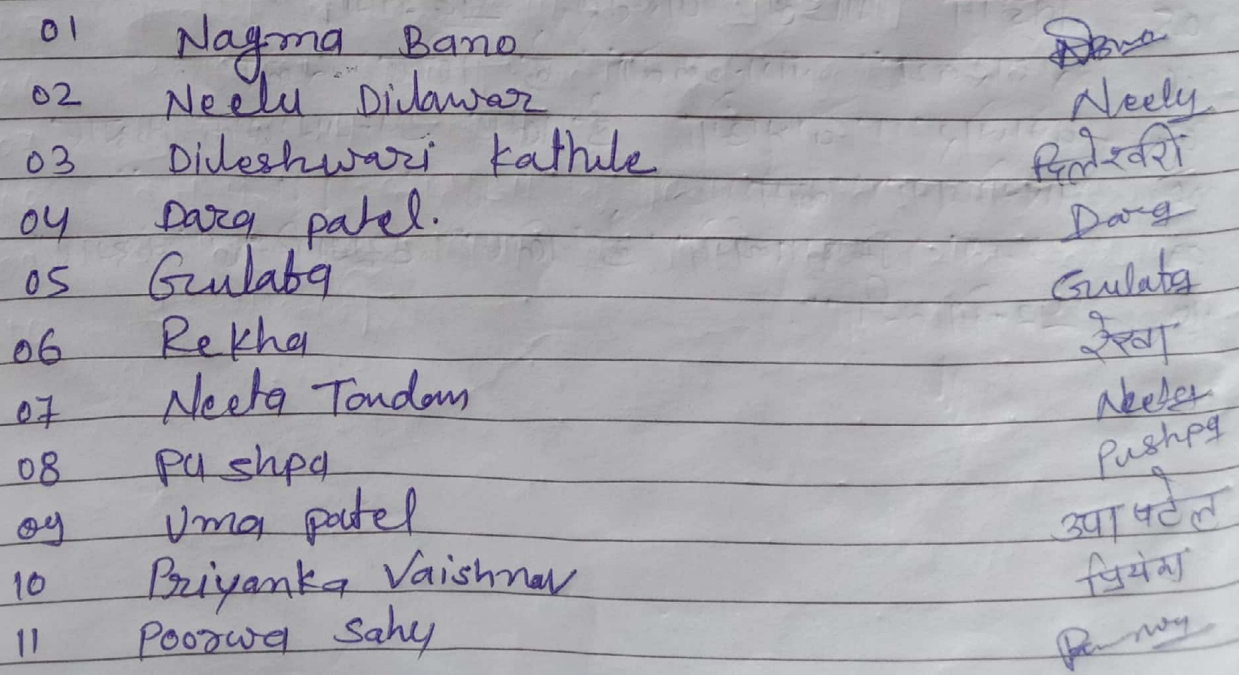 01 Nagma Bano
02 Neelu Dilawar Neelu
03 Dileshwari Kathule दिलेश्वरी
04 Dara patel. Dara
05 Gulaba Gulaba
06 Rekha रेखा
07 Neeta Tondon Neeta
08 Pushpa Pushpa
09 Uma patel उमा पटेल
10 Priyanka Vaishnav
11 Poorwa Sahu